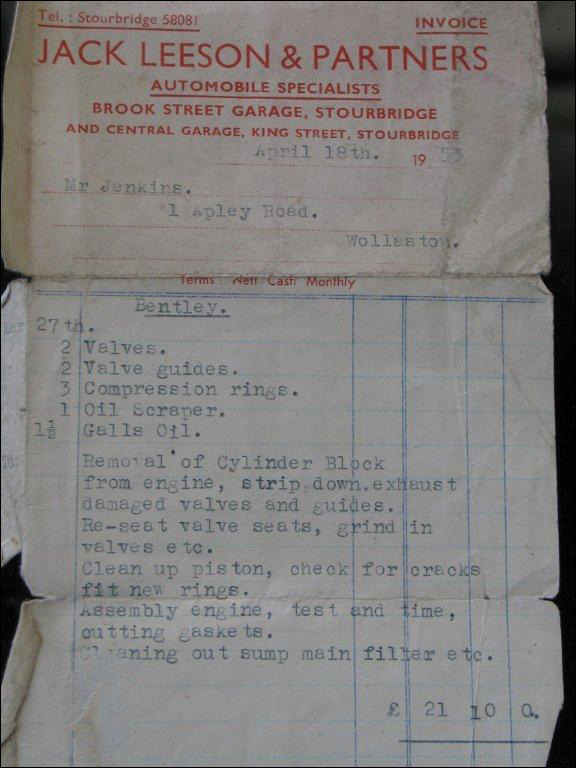 Tel. : Stourbridge 58081
INVOICE
JACK LEESON & PARTNERS
AUTOMOBILE SPECIALISTS
BROOK STREET GARAGE, STOURBRIDGE
AND CENTRAL GARAGE, KING STREET, STOURBRIDGE
April 18th. 1953
Mr Jenkins.
1 Apley Road.
Wollaston.
Terms : Nett Cash Monthly
Bentley.
Mar 27th.
2 Valves.
2 Valve guides.
3 Compression rings.
1 Oil Scraper.
1½ Galls Oil.
Removal of Cylinder Block
from engine, strip down.exhaust
damaged valves and guides.
Re-seat valve seats, grind in
valves etc.
Clean up piston, check for cracks
fit new rings.
Assembly engine, test and time,
cutting gaskets.
Cleaning out sump main filter etc.
£ 21 10 0.